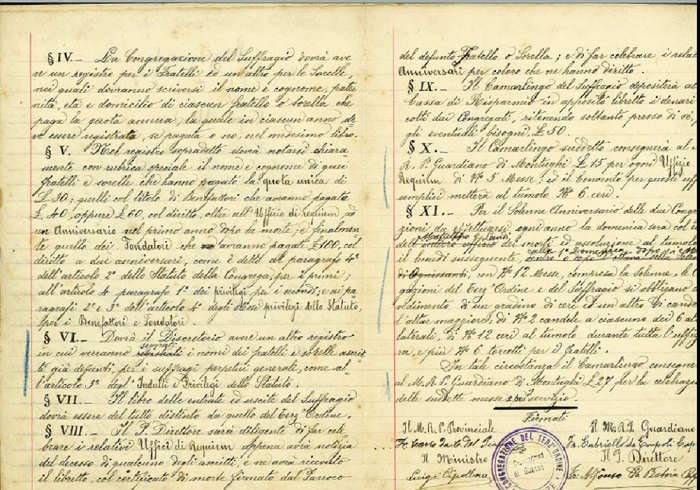 § IV._ La Congregazione del Suffragio dovrà ave
re un registro per i Fratelli ed un altro per le Sorelle,
nei quali dovranno scriversi il nome e cognome, pater
nità, età e domicilio di ciascun fratello o sorella che
paga la quota annua, la quale in ciascun anno de
ve essere registrata, se pagata o no, nel medesimo libro.
§ V. _ Nel registro sopradetto dovrà notarsi chiara
mente con rubrica speciale il nome e cognome di quei
fratelli e sorelle che hanno pagato la quota unica di
£ 30; quelli col titolo di Benefattori che avranno pagato
£ 40, oppure £ 60, col diretto, oltre all'Ufficio di Requiem, ad
un Anniversario nel primo anno dopo la morte; e finalmen
te quello dei Fondatori che avranno pagate £100, col
diretto a due anniversari, come è detto al paragrafo 4°
dell'articolo 2° dello Statuto della Congrega, per i primi;
all'articolo 4° paragrafo 1° dei privilegi, per i nonni, e ai pa
ragrafi 2° e 3° dell'articolo 4° degli stessi privilegi dello Statuto,
per i Benefattori e Fondatori.
§ VI._ Dovrà il Discretorio avere un altro registro
in cui verranno i nomi dei fratelli e sorelle ascrit
ti già defunti, per i suffragi perpetui generali, come al
l'articolo 5° degl'Indulti e Privilegi dello Statuto.
§ VII._ Il libro delle entrate ed uscite del Suffragio
dovrà essere del tutto distinto da quello del Terz'Ordine.
§ VIII._ Il P. Direttore sarà diligente di far cele
brare i relativi Uffici di Requiem appena avrà notizia
del decesso di qualcuno degli ascritti, e ne avrà ricevuto
il libretto, col certificato di morte firmato dal Parroco
del defunto Fratello o Sorella; e di far celebrare i rela
Anniversari per coloro che ne hanno diretto.
§ IX._ Il Camarlingo del Suffragio depositerà al
Cassa di Risparmio in apposito libretto i denari
colti dai Congregati, ritenendo soltanto presso di sè,
gli eventuali bisogni, £ 50.
§ X._ Il Camarlingo suddetto consegnerà al
R. P. Guardiano di Montughi £ 15 per ogni Ufficio
Requiem di N° 5 Messe; ed il Convento per questi uff
semplici metterà al tumolo N° 6 ceri.
§ XI._ Per il Solenne Anniversario delle due Cong
zioni da effettuarsi ogni anno la domenica sarà col
dei morti ed assoluzione al tumolo
il lunedì susseguente,
con N° 12 Messe, compresa la Solenne, le
gazioni del Terz'Ordine e del Suffragio si obbligano
di un gradino di cera d'un altro
l'altar maggiore, di N° 2 candele a ciascuno dei 6 al
laterali, di N° 12 ceri al tumolo durante tutta l'uffizia
ra, e più N° 6 torcetti per i fratelli.
In tale circostanza il Camarlingo consegne
al M. R. P. Guardiano di Montughi £ 27 per la celebraz
delle suddette messe e pel servizio.
Firmati
Il M. R. P. Provinciale
Il M. R. P. Guardiano
Il Ministro
Il P. Direttore
Luigi Cipollini
Fr. Alfonso
CONGREGAZIONE DEL TERZ'ORDINE